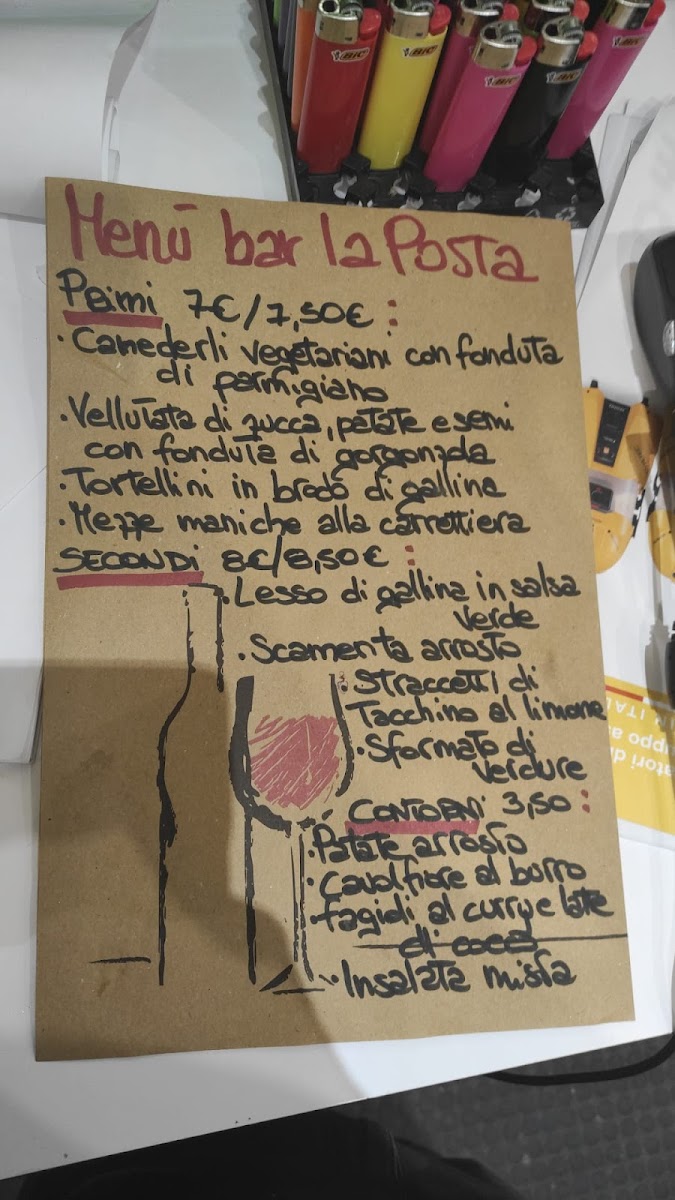 BIC
BIC
BIC
BIC
BIC
Menù bar la Posta
Primi 7€/7,50€:
· Canederli vegetariani con fonduta
di parmigiano
· Vellutata di zucca, patate e semi
con fonduta di gorgonzola
· Tortellini in brodo di gallina
· Mezze maniche alla carrettiera
SECONDI 8€/8,50€:
· Lesso di gallina in salsa
verde
· Scamerita arrosto
· Straccetti di
Tacchino al limone
· Sformato di
verdure
CONTORNI 3,50:
· Patate arrosto
· Cavolfiore al burro
· fagioli al curry e latte
di cocco
· Insalata mista